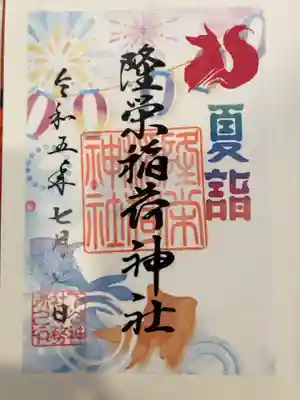 夏詣
隆栄稲荷神社
隆栄
稲荷
神社
令和五年七月七日